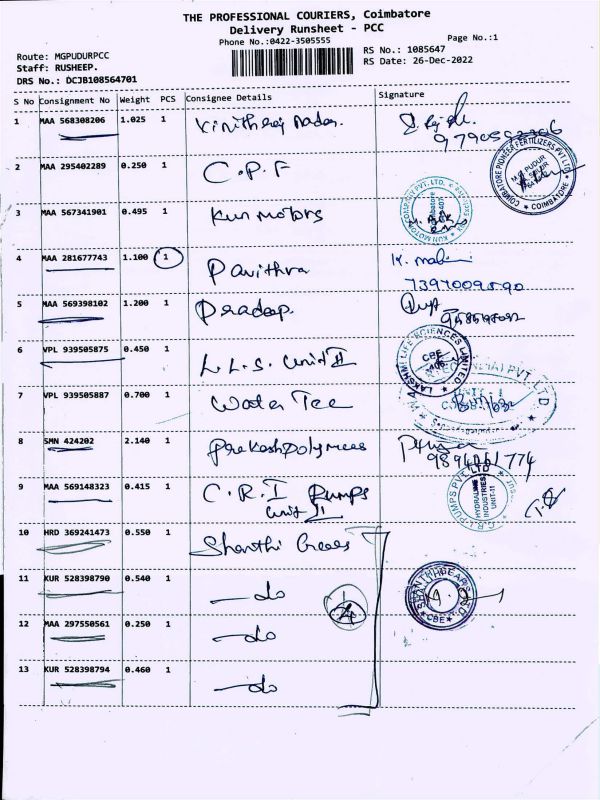 THE PROFESSIONAL COURIERS, Coimbatore
Delivery Runsheet - PCC
Phone No.:0422-3505555
Page No.:1
Route: MGPUDURPCC
RS No.: 1085647
Staff: RUSHEEP.
RS Date: 26-Dec-2022
DRS No.: DCJB108564701
S No Consignment No Weight PCS Consignee Details Signature
1 MAA 568308206 1.025 1
2 MAA 295402289 0.250 1 C.P.F
COIMBATORE PIONEER FERTILIZERS PVT LTD
COIMBATORE
3 MAA 567341901 0.495 1 Kun Motors
KUN MOTOR COMPANY PVT. LTD.
4 MAA 281677743 1.100 1 Pavithra
5 MAA 569398102 1.200 1 Pradeep.
6 VPL 939505875 0.450 1 L.L.S. Unit II
LAKSHMI LIFE SCIENCES LIMITED
CBE
7 VPL 939505887 0.700 1 Water Tec
PVT. LTD
8 SMN 424202 2.140 1 Prakash polymers
9 MAA 569148323 0.415 1 C.R.I Pumps
Unit II
C.R.I PUMPS PVT LTD
HYDRALINE
INDUSTRIES
UNIT-II
10 HRD 369241473 0.550 1 Shanthi Gears
11 KUR 528398790 0.540 1 do
SHANTHI GEARS
CBE
12 MAA 297550561 0.250 1 do
13 KUR 528398794 0.460 1 do